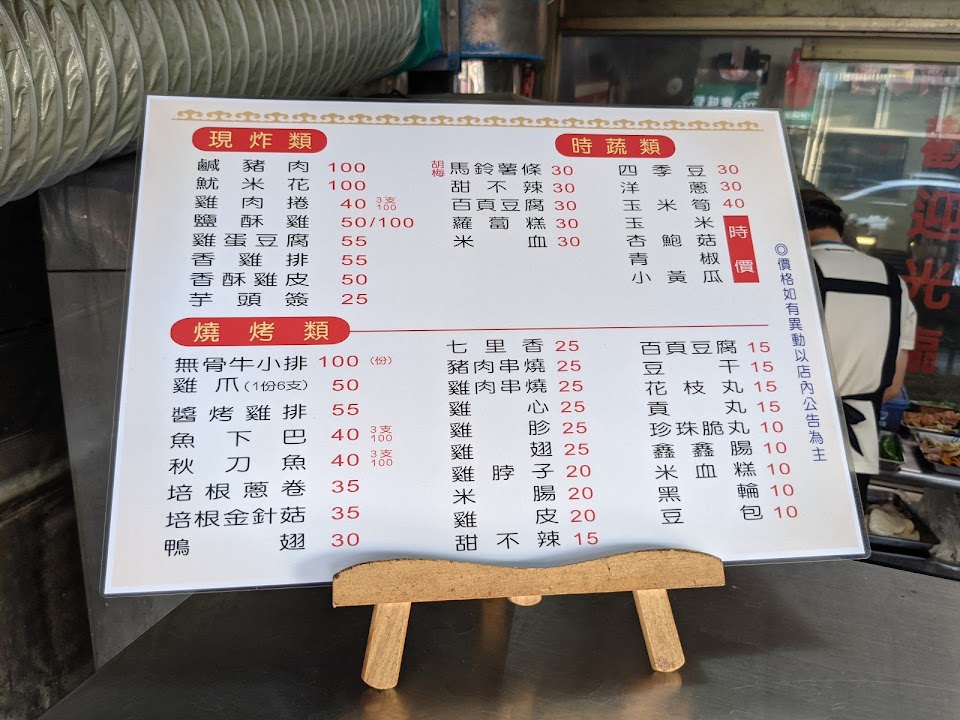 現炸類
鹹豬肉 100
魷米花 100
雞肉捲 40 3支100
鹽酥雞 50/100
雞蛋豆腐 55
香雞排 55
香酥雞皮 50
芋頭簽 25
胡梅 馬鈴薯條 30
甜不辣 30
百頁豆腐 30
蘿蔔糕 30
米血 30
時蔬類
四季豆 30
洋蔥 30
玉米筍 40
玉米
杏鮑菇
青椒
小黃瓜
時價
燒烤類
無骨牛小排 100 (份)
雞爪(1份6支) 50
醬烤雞排 55
魚下巴 40 3支100
秋刀魚 40 3支100
培根蔥卷 35
培根金針菇 35
鴨翅 30
七里香 25
豬肉串燒 25
雞肉串燒 25
雞心 25
雞胗 25
雞翅 25
雞脖子 20
米腸 20
雞皮 20
甜不辣 15
百頁豆腐 15
豆干 15
花枝丸 15
貢丸 15
珍珠脆丸 10
鑫鑫腸 10
米血糕 10
黑輪 10
豆包 10
◎價格如有異動以店內公告為主
歡迎光臨